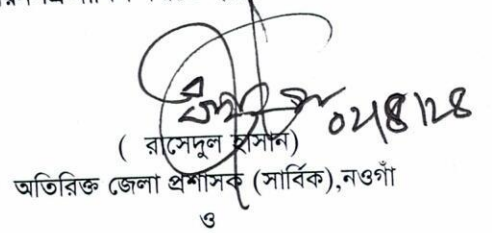 ০২/৪/২৪
( রাসেদুল হাসান)
অতিরিক্ত জেলা প্রশাসক (সার্বিক),নওগাঁ
ও